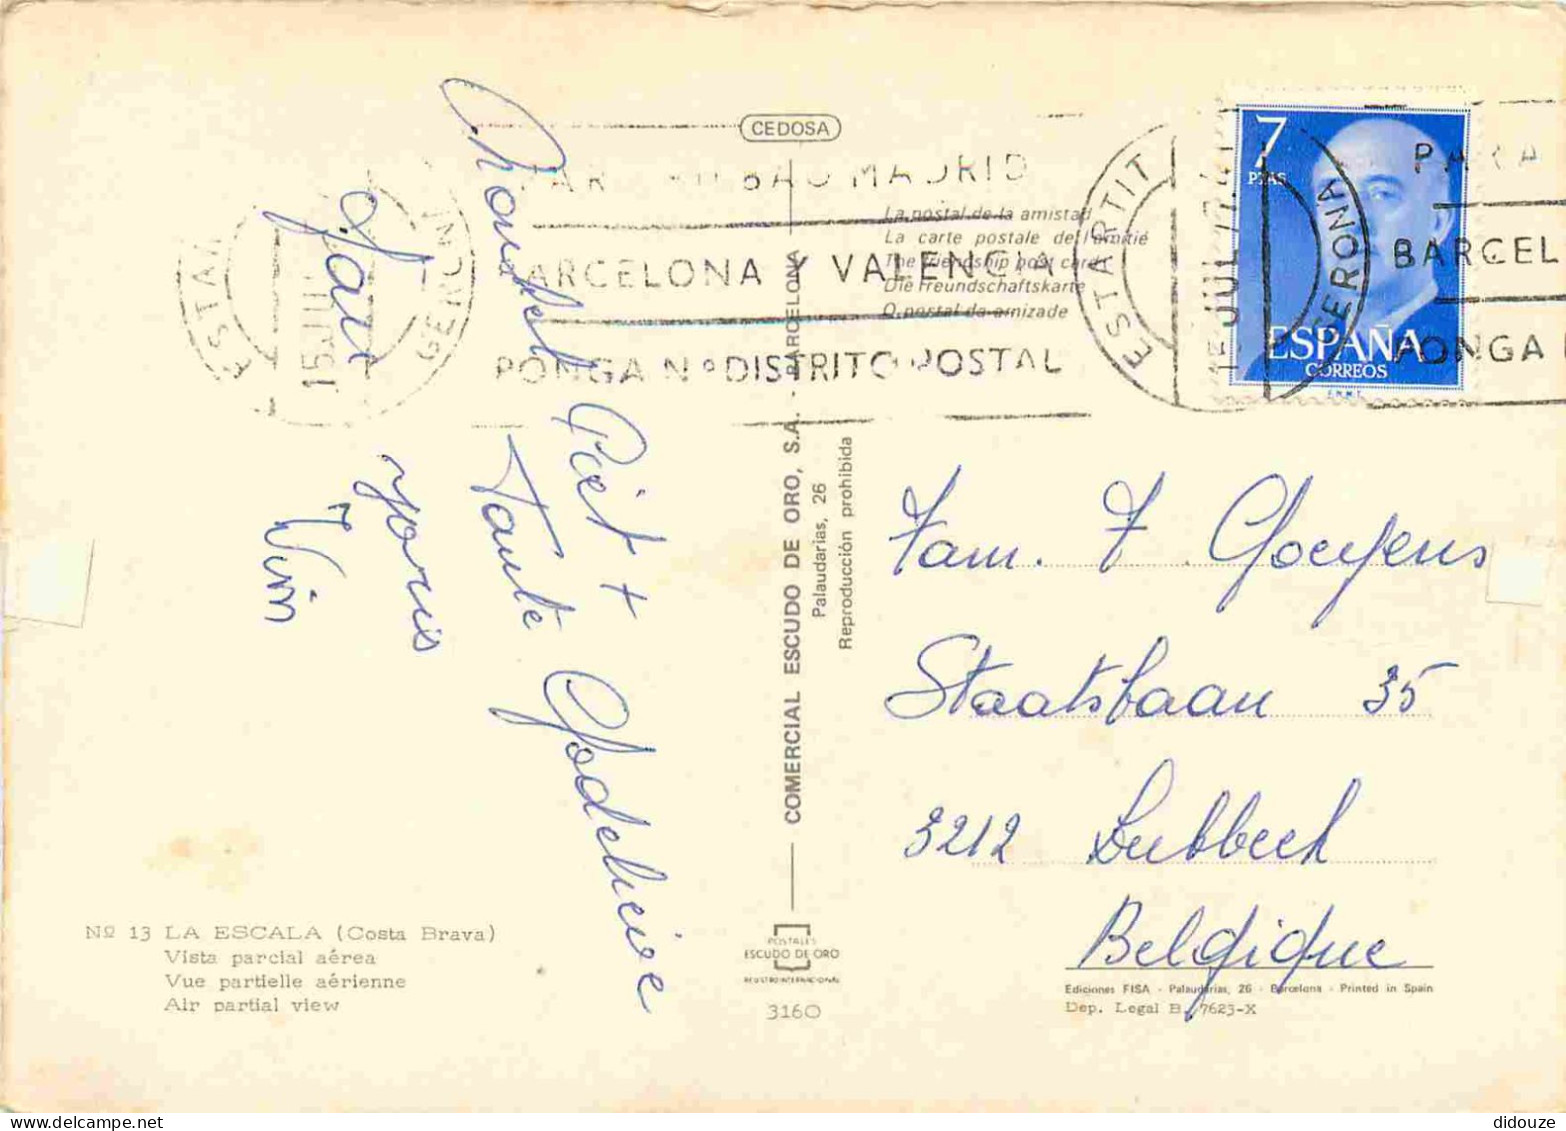 CEDOSA
PARA BILBAO MADRID
BARCELONA Y VALENCIA
PONGA Nº DISTRITO POSTAL
ESTARTIT
GERONA
15 JUL
La postal de la amistad
La carte postale de l'amitié
The friendship post card
Die Freundschaftskarte
O postal da amizade
ESTARTIT
GERONA
15 JUL
7
PTAS
ESPAÑA
CORREOS
F.N.M.T.
PARA
BARCEL
PONGA
Nonkel Piet +
Tante Godelieve
Jan
Joris
Wim
Fam. F. Goeyens
Staatsbaan 35
3212 Lubbeek
Belgique
COMERCIAL ESCUDO DE ORO, S.A. - BARCELONA
Palaudarias, 26
Reproducción prohibida
Nº 13 LA ESCALA (Costa Brava)
Vista parcial aérea
Vue partielle aérienne
Air partial view
POSTALES
ESCUDO DE ORO
REGISTRO INTERNACIONAL
3160
Ediciones FISA - Palaudarias, 26 - Barcelona - Printed in Spain
Dep. Legal B. 7623-X
didouze